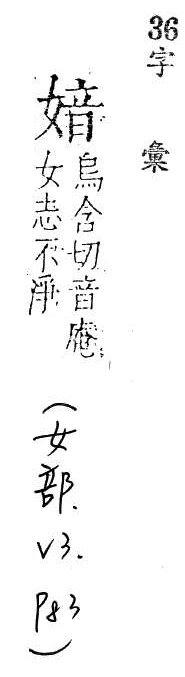 36字彙
媕烏含切音庵
女志不淨
(女部.
v3.
P83)